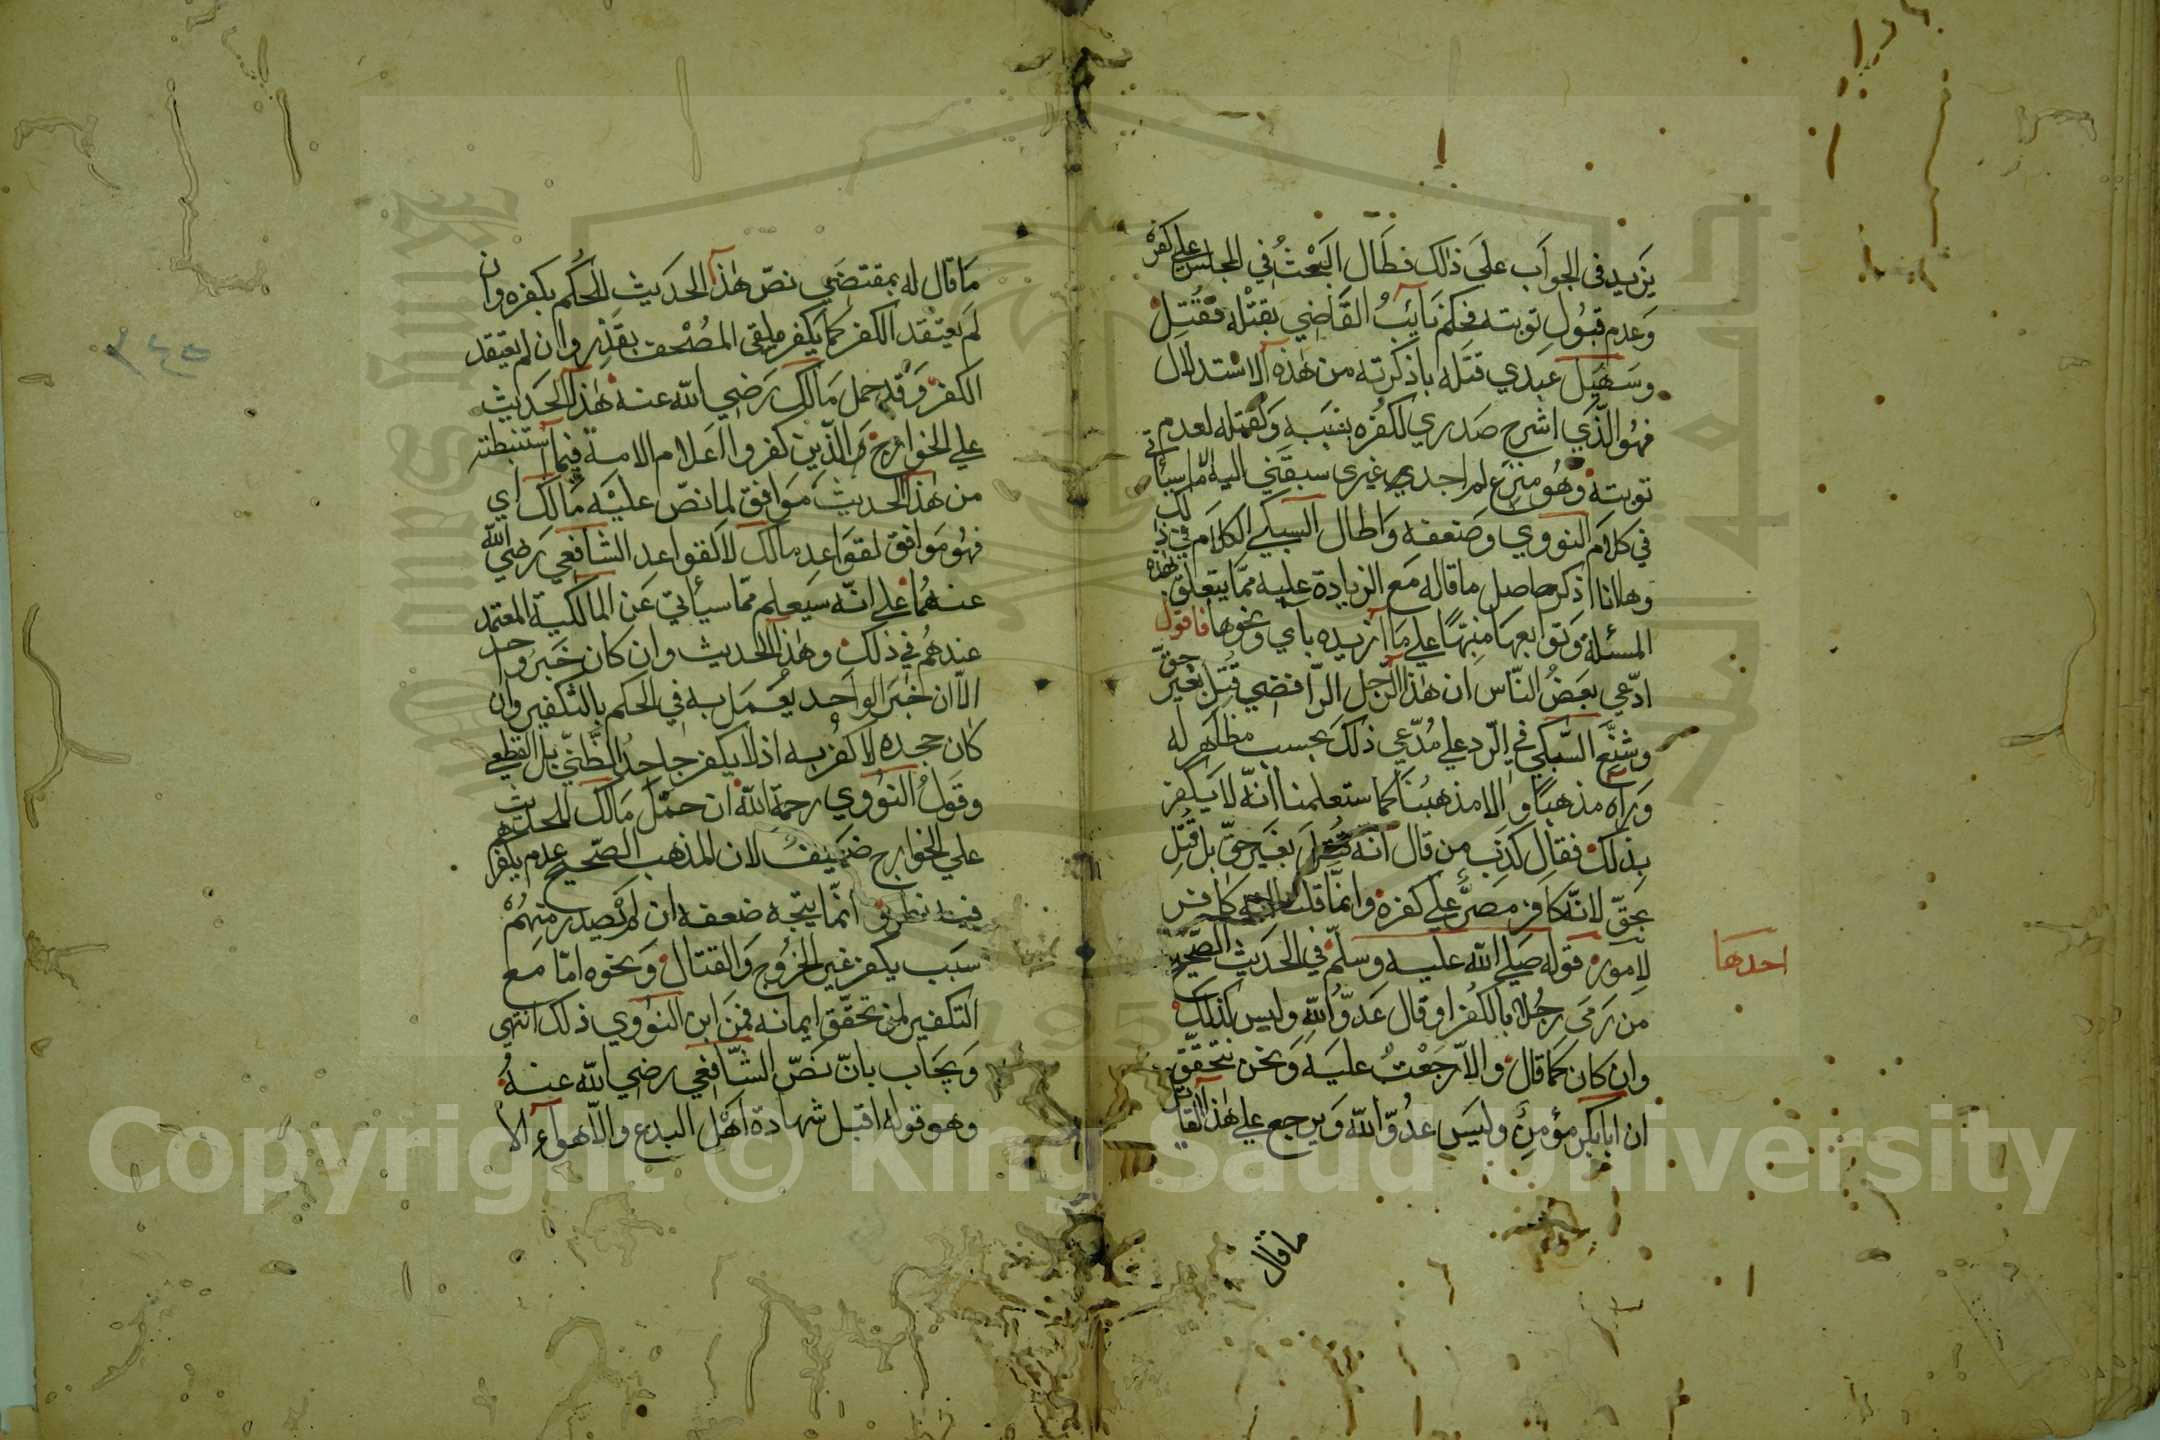 يزيد في الجواب على ذلك فطال البحث في المجلس على كفره
وعدم قبول توبته فحكم نائب القاضي بقتله فقتل
وسهل عندي قتله بما ذكرته من هذا الاستدلال
فهو الذي انشرح صدري لكفره بسببه ولقتله لعدم
توبته وهو منزع لم اجد غيري سبقني اليه الا ما سيأتي
في كلام النووي وضعفه واطال السبكي الكلام في ذلك
وها انا اذكر حاصل ما قاله مع الزيادة عليه مما يتعلق بهذه
المسئلة وتوابعها منبها على ما ازيده بأي ونحوها فاقول
ادعى بعض الناس ان هذا الرجل الرافضي قتل بغير حق
وشنع السبكي في الرد على مدعي ذلك بحسب ما ظهر له
ورآه مذهبا والا مذهبنا كما ستعلمنا انه لا يكفر
بذلك فقال كذب من قال انه قتل بغير حق بل قتل
بحق لانه كافر مصر على كفره وانما قلنا انه كافر
لامور قوله صلى الله عليه وسلم في الحديث الصحيح
احدها
من رمى رجلا بالكفر او قال عدو الله وليس كذلك
وان كان كما قال والا رجعت عليه ونحن نتحقق
ان ابا بكر مؤمن وليس عدو الله ويرجع على هذا القائل
ما قال
ما قال له بمقتضى نص هذا الحديث للحكم بكفره وان
لم يعتقد الكفر كما يكفر ملقي المصحف بقذر وان لم يعتقد
الكفر وقد حمل مالك رضي الله عنه هذا الحديث
على الخوارج الذين كفروا اعلام الامة فيما استنبطته
من هذا الحديث موافق لما نص عليه مالك اي
فهو موافق لقواعد مالك لا لقواعد الشافعي رضي الله
عنهما على انه سيعلم مما سيأتي عن المالكية المعتمد
عندهم في ذلك وهذا الحديث وان كان خبر واحد
الا ان خبر الواحد يعمل به في الحكم بالتكفير وان
كان جحده لا كفر به اذ لا يكفر جاحد الظني بل القطعي
وقول النووي رحمه الله ان حمل مالك للحديث
على الخوارج ضعيف لان المذهب الصحيح عدم تكفيرهم
فيه نظر انما يتجه ضعفه ان لم يصدر منهم
سبب يكفر غير الخروج والقتال ونحوه اما مع
التكفير لمن تحقق ايمانه فمن اين للنووي ذلك انتهى
ويجاب بان نص الشافعي رضي الله عنه
وهو قوله اقبل شهادة اهل البدع والاهواء الا